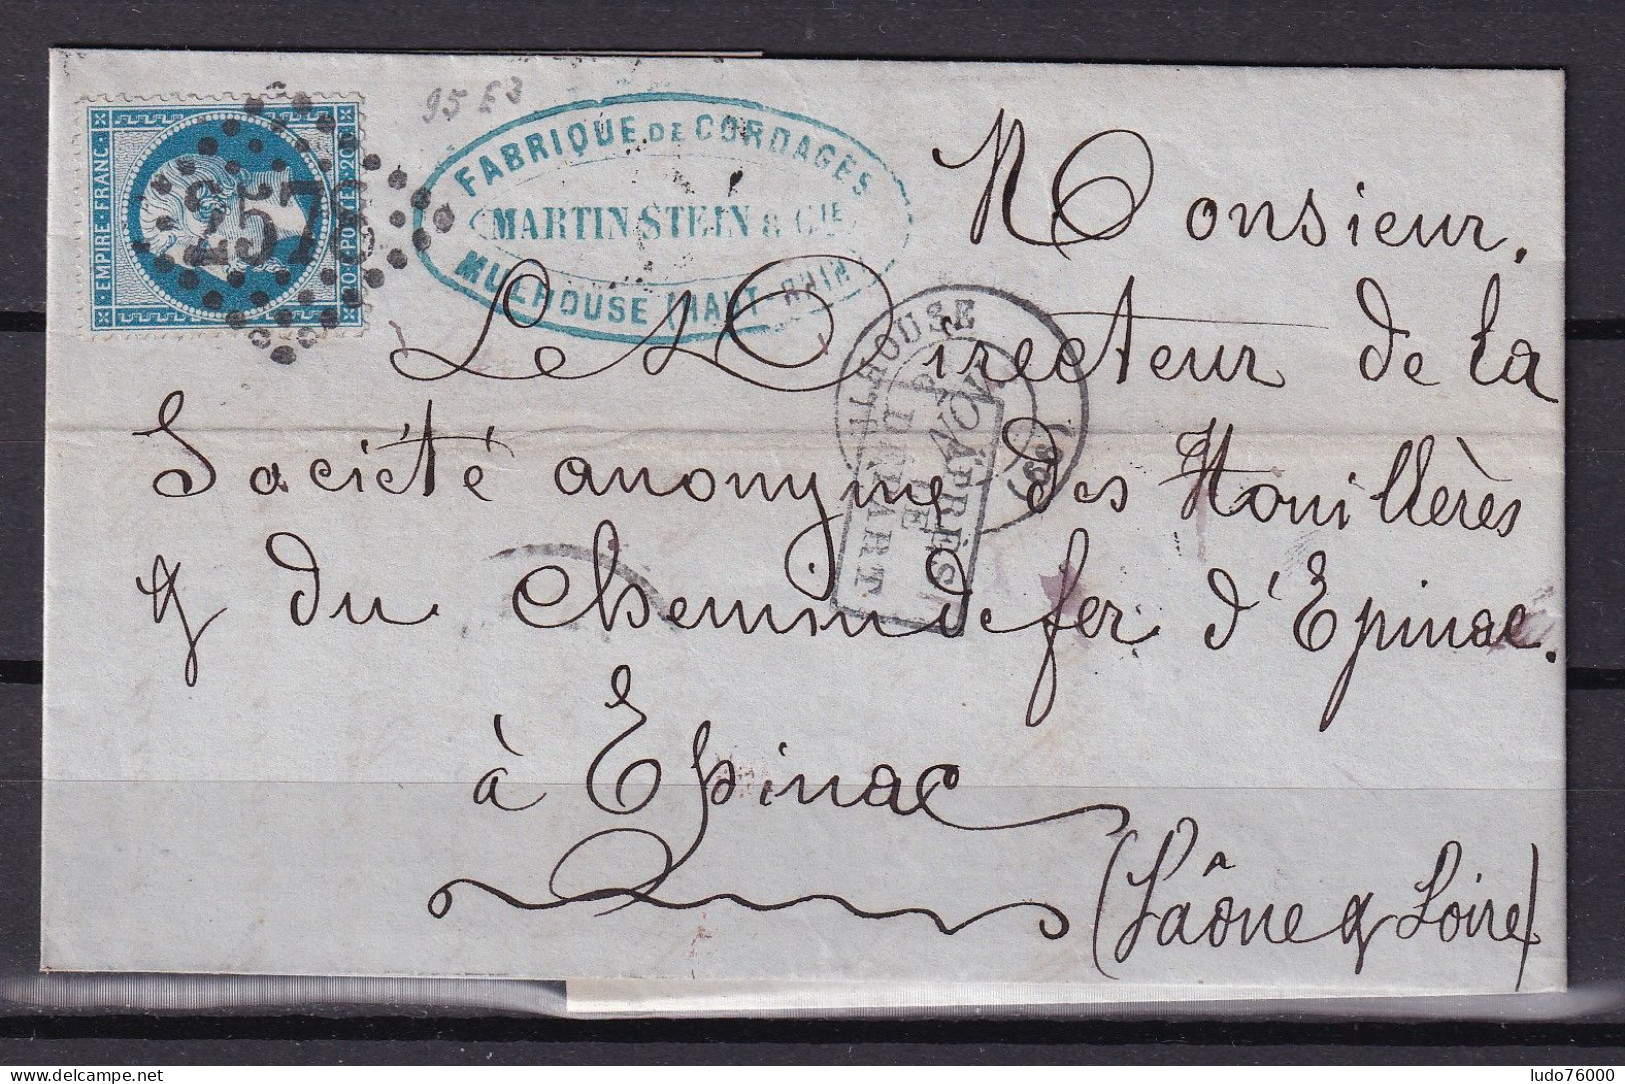 95 E3
EMPIRE · FRANC ·
20 · C · POSTES · 20 · C
2578
FABRIQUE DE CORDAGES
MARTIN STEIN & CIE
MULHOUSE (HAUT-RHIN)
Monsieur.
Le Directeur de la
Société anonyme des Houillères
& du Chemin de fer d'Epinac.
à Epinac
(Saône & Loire)
MULHOUSE
NOV.
(66)
APRÈS
LE
DÉPART
delcampe.net
ludo76000